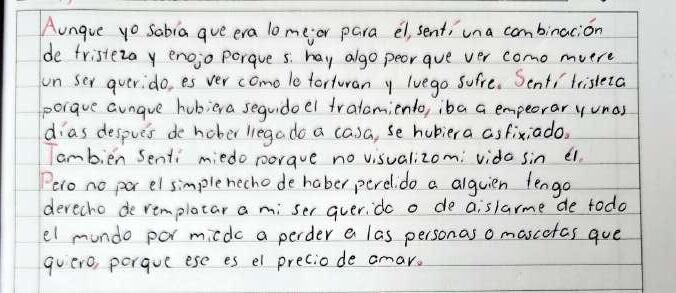 Aunque yo sabía que era lo mejor para él, sentí una combinación
de tristeza y enojo porque si hay algo peor que ver como muere
un ser querido, es ver cómo lo torturan y luego sufre. Sentí tristeza
porque aunque hubiera seguido el tratamiento, iba a empeorar y unos
días después de haber llegado a casa, se hubiera asfixiado.
También sentí miedo porque no visualizo mi vida sin él.
Pero no por el simple hecho de haber perdido a alguien tengo
derecho de remplazar a mi ser querido o de aislarme de todo
el mundo por miedo a perder a las personas o mascotas que
quiero, porque ese es el precio de amar.